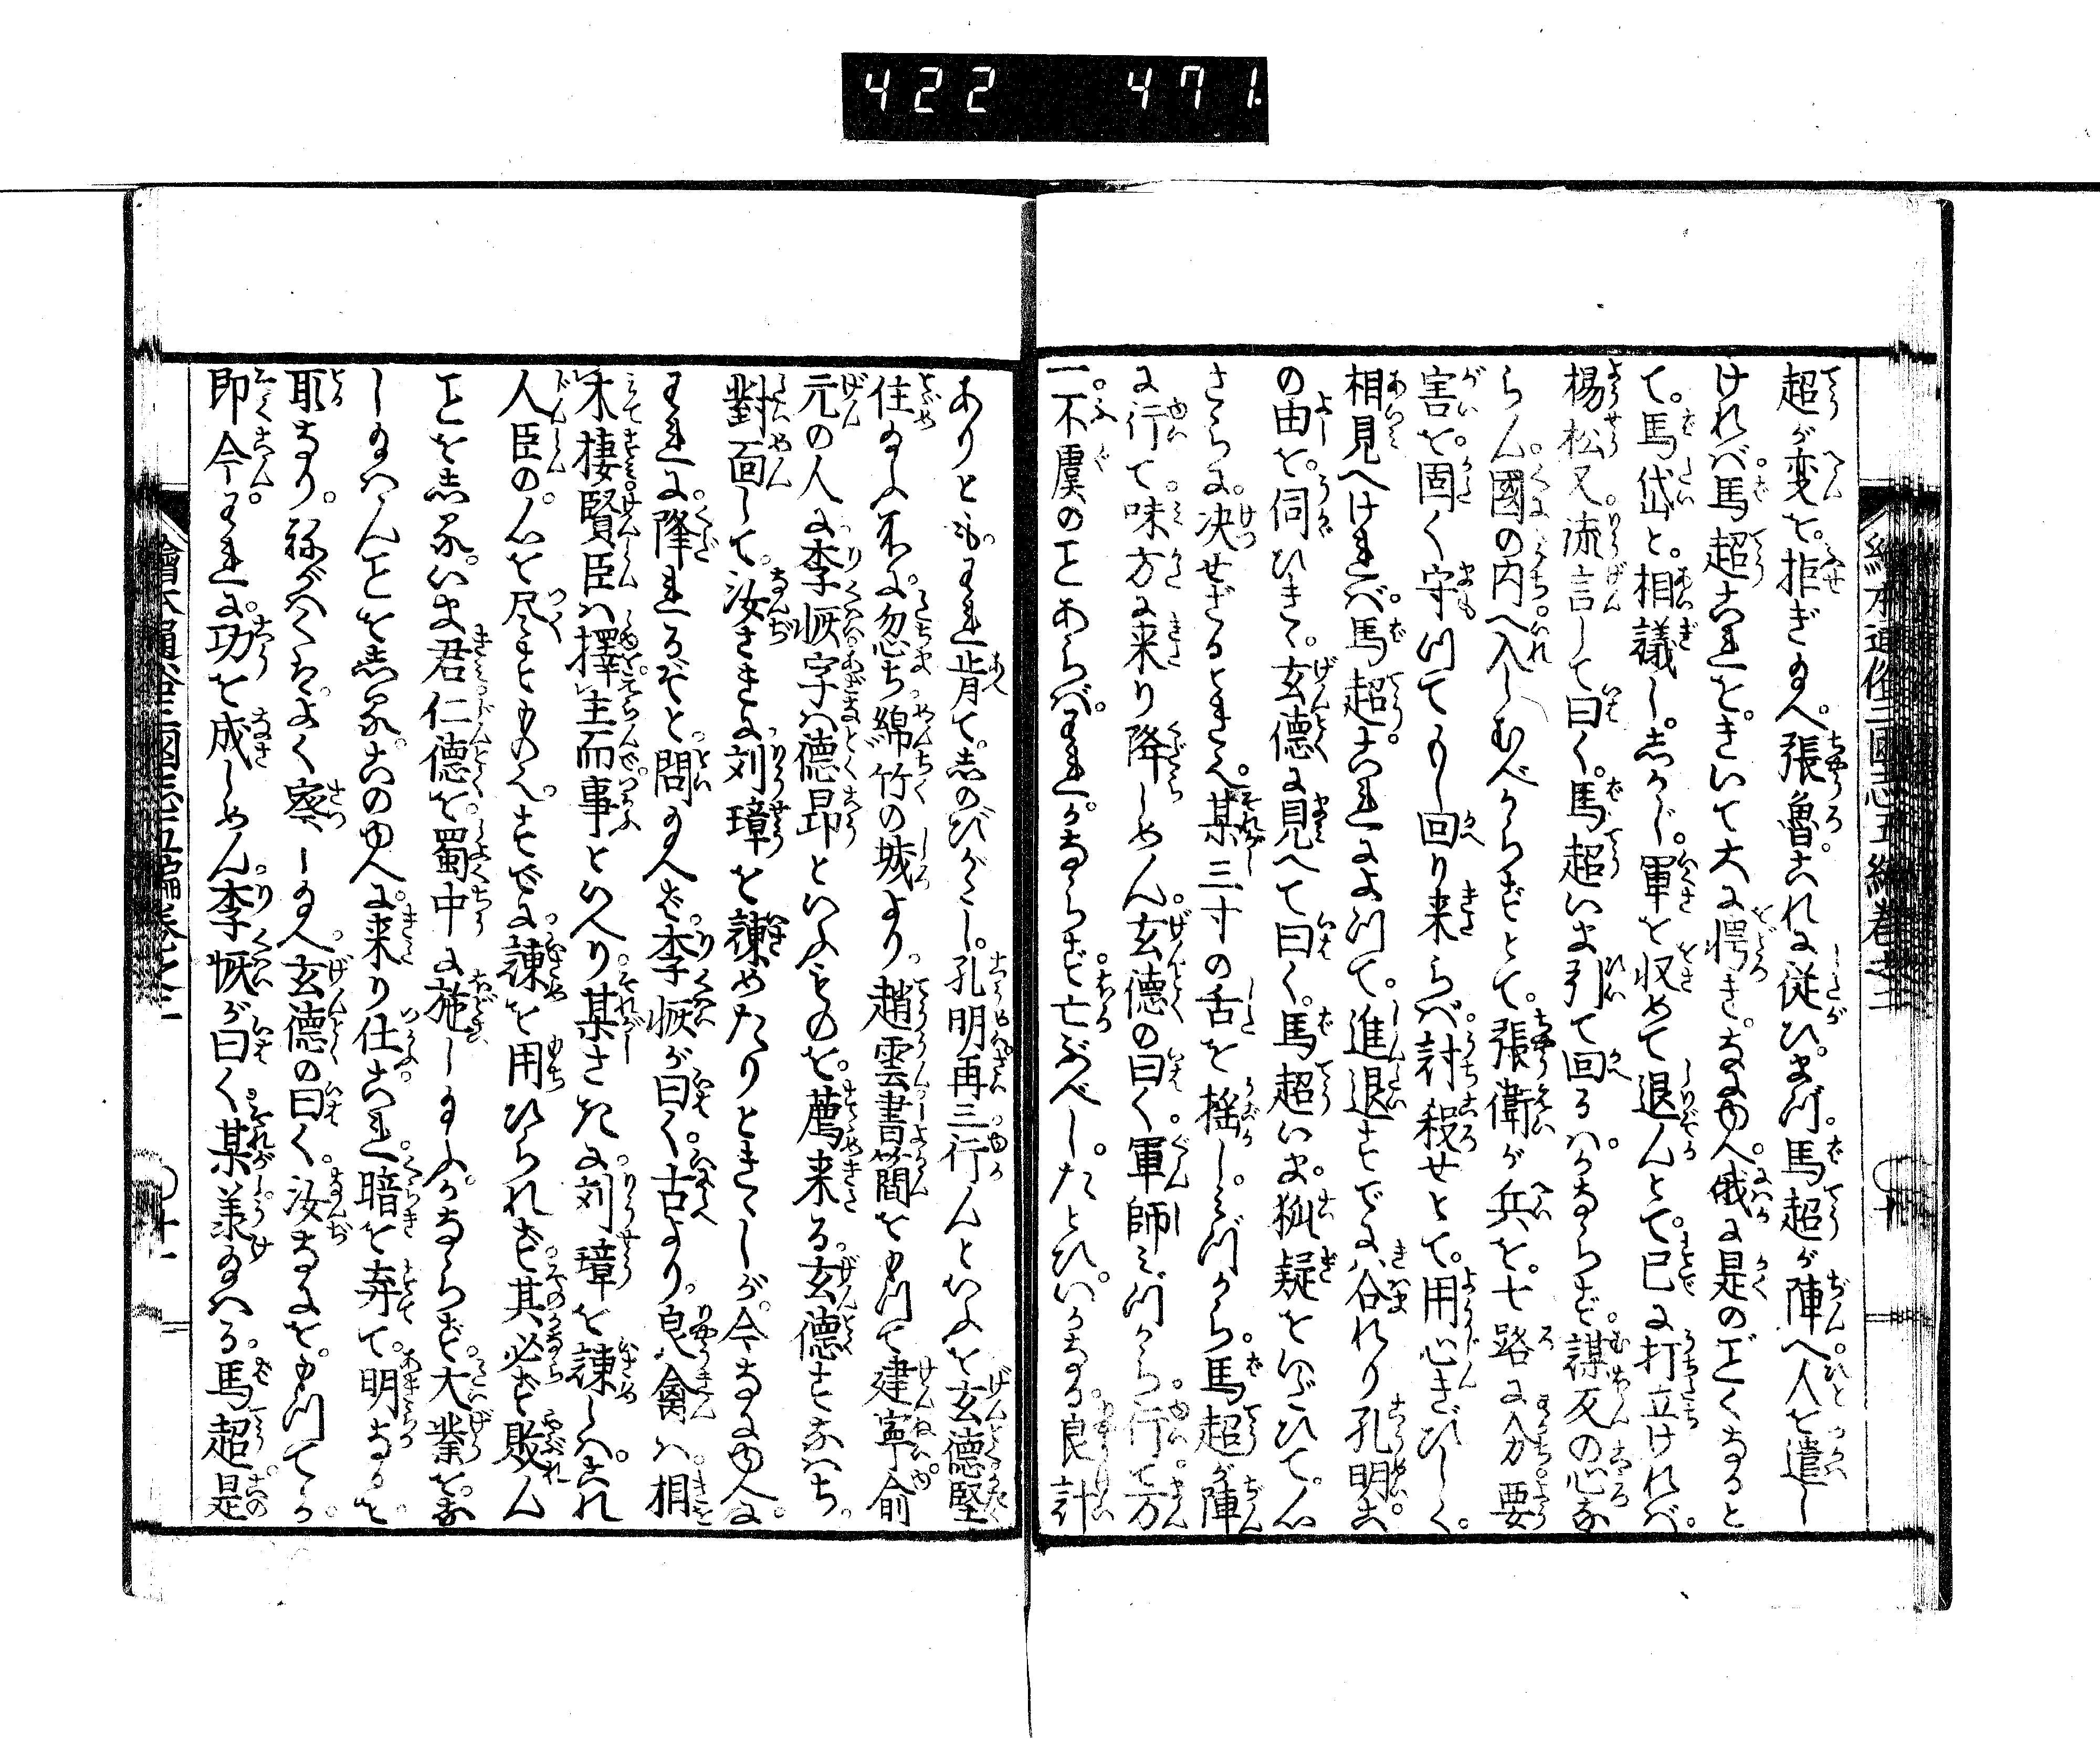 422 471
繪本通俗三國志五編卷之二
十
超が変を拒ぎ給へ張魯これに従ひまづ馬超が陣へ人を遣し
ければ馬超これをきいて大に愕きなにゆへ俄に是のごとくなると
て馬岱と相議しゝかじ軍を収めて退んとて已に打立ければ
楊松又流言して曰く馬超いま引て回るはかならず謀反の心な
らん國の内へ入しむべからずとて張衛が兵を七路に分要
害を固く守つてもし回り来らば討殺せとて用心きびしく
相見へければ馬超これによつて進退すでに谷れり孔明こ
の由を伺ひきゝ玄德に見へて曰く馬超いま狐疑をいだひて心
さらに决せざるときく某三寸の舌を揺しみづから馬超が陣
に行て味方に来り降しめん玄德の曰く軍師みづから行て万
一不虞のことあらばわれかならず亡ぶべしたとひいかなる良計
ありともわれ肯てしのびがたし孔明再三行んといふを玄德堅
住め給ふ所に忽ち綿竹の城より趙雲書簡をもつて建寧俞
元の人に李恢字は德昂といふものを薦来る玄德すなはち
對面して汝さきに刘璋を諫めたりときゝしが今なにゆへに
われに降れるぞと問給へば李恢が曰く古より良禽は相
木棲賢臣は擇主而事といへり某さきに刘璋を諫しはこれ
人臣の心を尽すものへすでに諫を用ひられず其必ず敗ん
ことをしるいま君仁德を蜀中に施し給ふかならず大業をな
し給はんことをしるこのゆへに来り仕これ暗を弃て明なるを
取なり称がくはよく察し給へ玄德の曰く汝なにをもつてか
即今われに功を成しめん李恢が曰く某羕給へる馬超是
繪本通俗三國志五編卷之二
十一